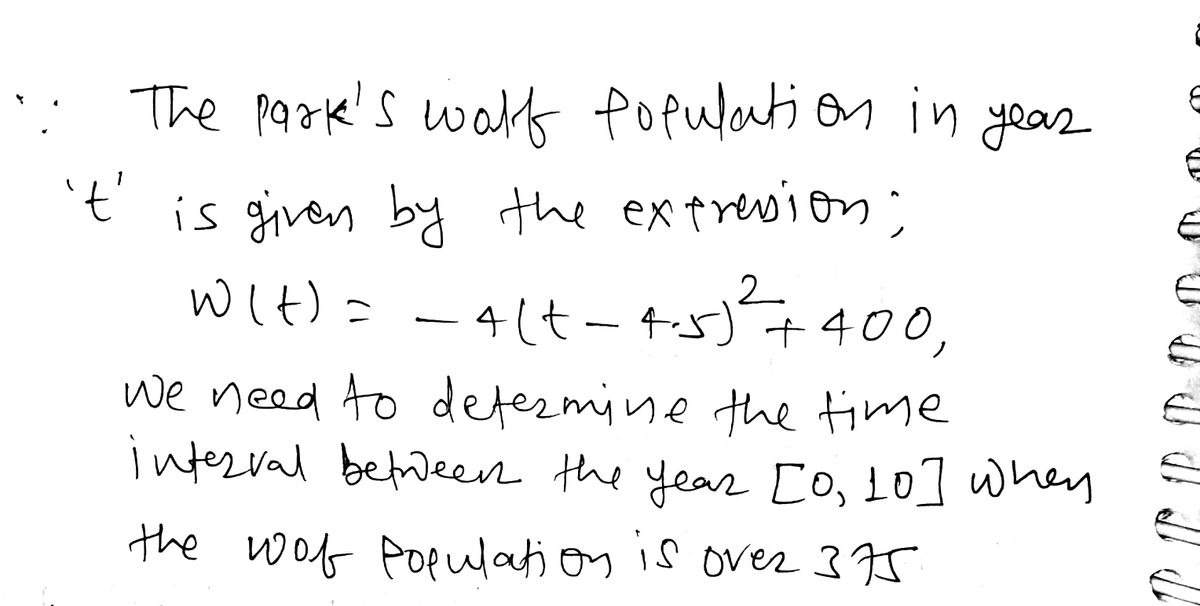 ∵ The park's walf population in year
't' is given by the expression;
W(t) = -4(t - 4.5)² + 400,
we need to determine the time
interval between the year [0, 10] when
the wof population is over 375